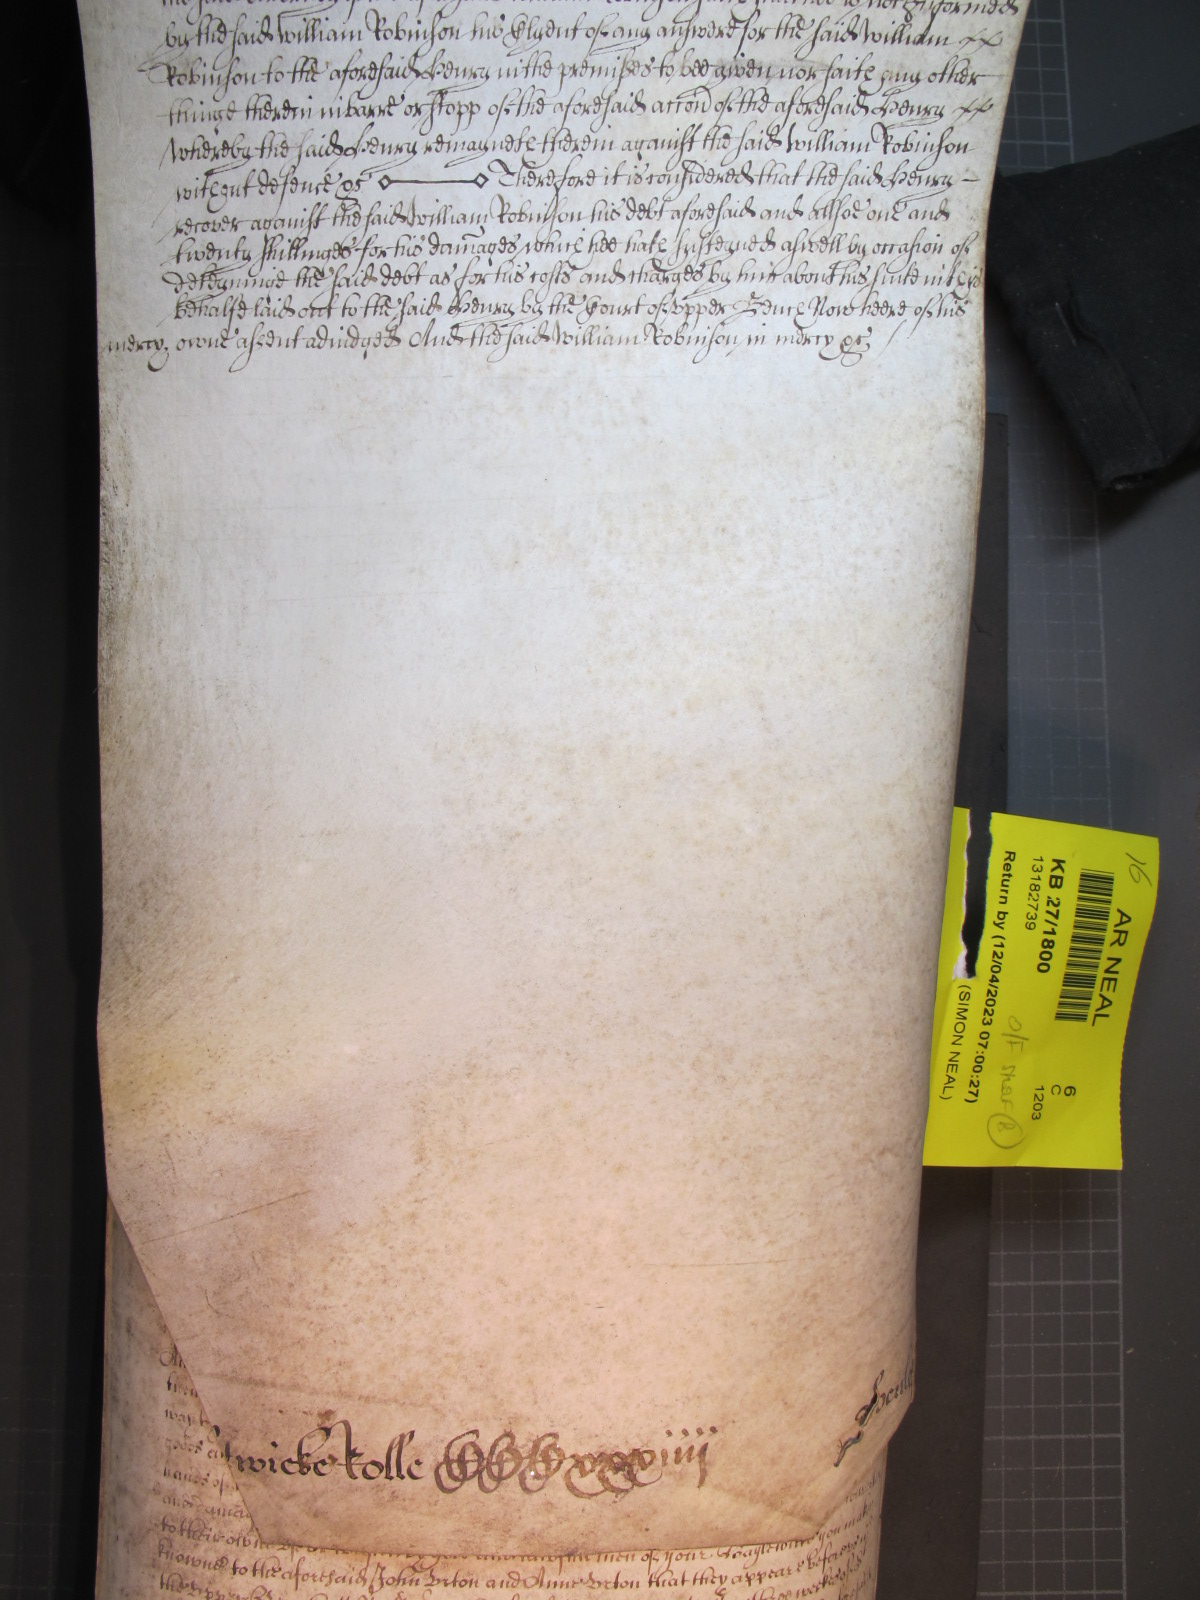 by the said William Robinson his Clyent of any answere for the said William
Robinson to the aforesaid Henry in the premisses to bee given nor saith any other
thinge therein in barre or stopp of the aforesaid accon of the aforesaid Henry
Whereby the said Henry remayneth therein against the said William Robinson
without defence &c Therefore it is considered that the said Henry
recover against the said William Robinson his debt aforesaid and allsoe one and
twenty shillinges for his damages which hee hath susteyned aswell by occasion of
deteyninge the said debt as for his costs and charges by him about his suite in this
behalfe laid out to the said Henry by the Court of Upper Bench Now heere of his
mercy; owne assent adiudged And the said William Robinson in mercy &c
wicke Rolle CCCCxxxiiii
to their owne
men of your
you make
knowne to the aforesaid John Orton and Anne Orton that they appeare before
weekes of
AR NEAL
16
KB 27/1800
13182739
Return by (12/04/2023 07:00:27)
(SIMON NEAL)
6
C
1203
O/F Shelf 8